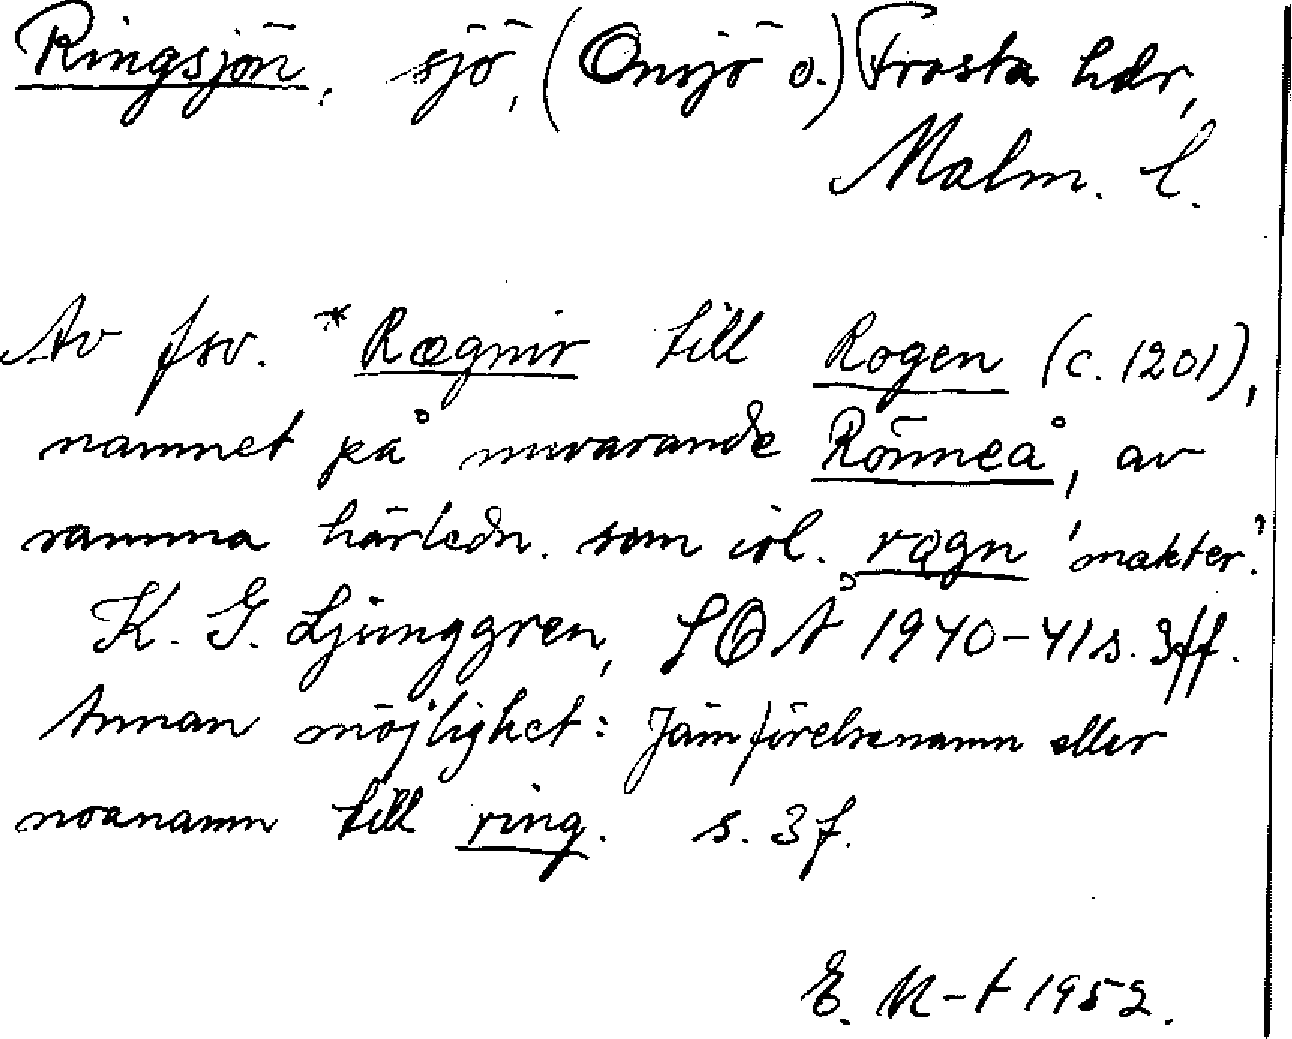 Ringsjön, sjö, (Onsjö o.) Frosta hdr,
Malm. l.
Av fsv. *Rægnir till Rogen (c. 1201),
namnet på nuvarande Rönneå, av
samma härledn. som isl. rǫgn 'makter'.
K. G. Ljunggren, SOÅ 1940-41 s. 3ff.
Annan möjlighet: Jämförelsenamn eller
noanamn till ring. s. 3f.
E. M-t 1952.